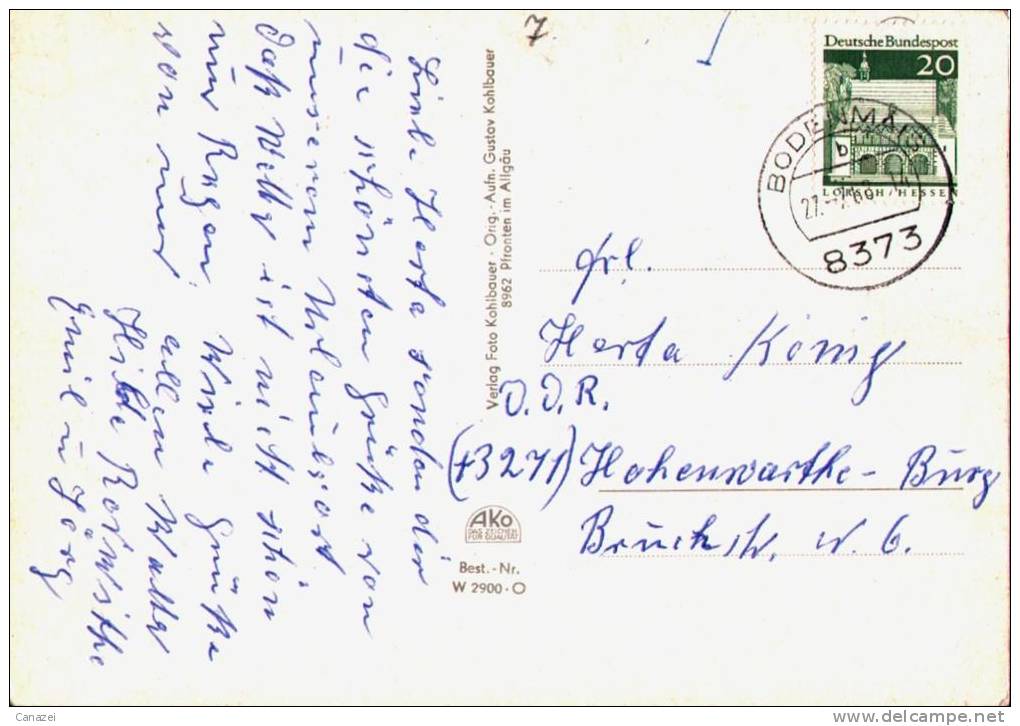 7
Liebe Herta senden dir
die schönsten Grüße von
unserem Urlaubsort.
Daß Wetter ist nicht schön
nur Regen. Viele Grüße
von uns allen
Hilde
Emil u Jörg
Verlag Foto Kohlbauer · Orig.-Aufn. Gustav Kohlbauer
8962 Pfronten im Allgäu
AKo
DAS ZEICHEN
FÜR QUALITÄT
Best.-Nr.
W 2900·O
Deutsche Bundespost
20
LORSCH/HESSEN
BODENMAIS
8373
Frl.
Herta König
D.D.R.
(+3271) Hohenwarthe-Burg
Bruchstr. N. 6.
Canazei
www.delcampe.net